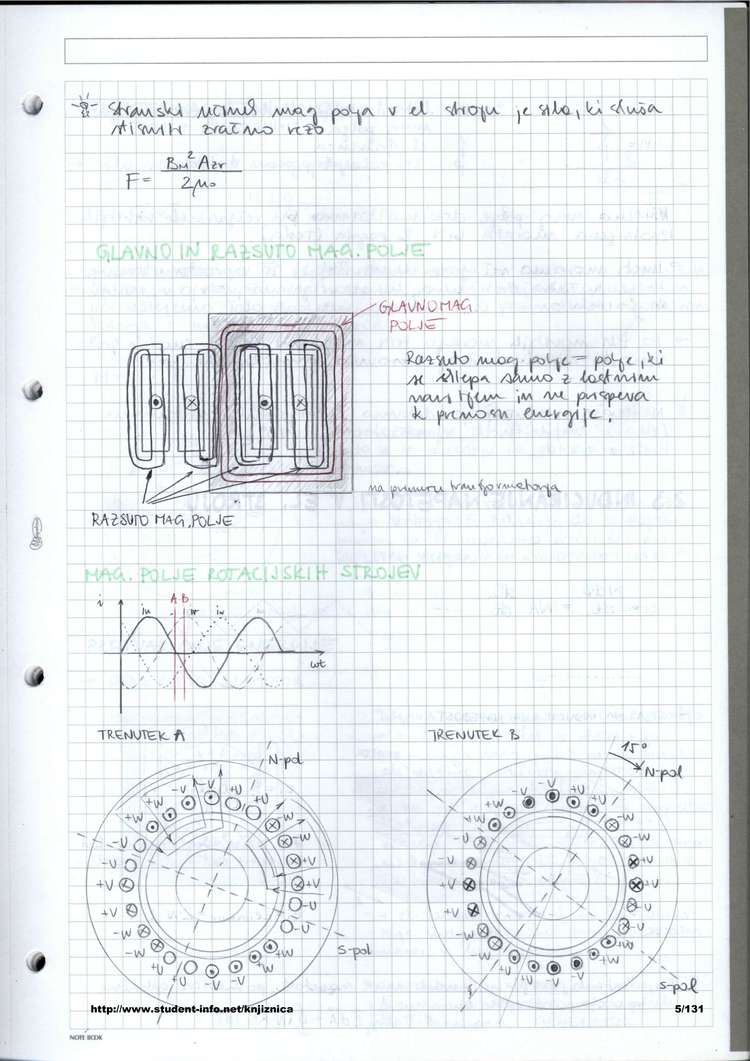 Stranski učinek mag polja v el stroju je sila, ki skuša
stisniti zračno režo
F = Bm² Azr / 2μ₀
GLAVNO IN RAZSUTO MAG. POLJE
GLAVNO MAG.
POLJE
Razsuto mag. polje = polje, ki
se sklepa samo z lastnim
navitjem in ne prispeva
k prenosu energije.
na primeru transformatorja
RAZSUTO MAG. POLJE
MAG. POLJE ROTACIJSKIH STROJEV
i
A B
iu iv iw
ωt
TRENUTEK A
TRENUTEK B
15°
N-pol
N-pol
-V -V +U +U -W -W +V +V -U -U +W +W -V -V +U +U -W -W +V +V -U -U +W +W
-V -V +U +U -W -W +V +V -U -U +W +W -V -V +U +U -W -W +V +V -U -U +W +W
S-pol
S-pol
http://www.student-info.net/knjiznica
5/131
NOTE BOOK